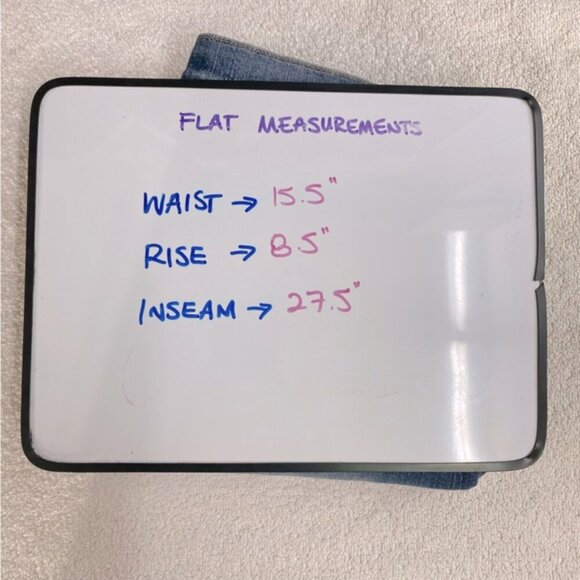 FLAT MEASUREMENTS
WAIST → 15.5"
RISE → 8.5"
INSEAM → 27.5"